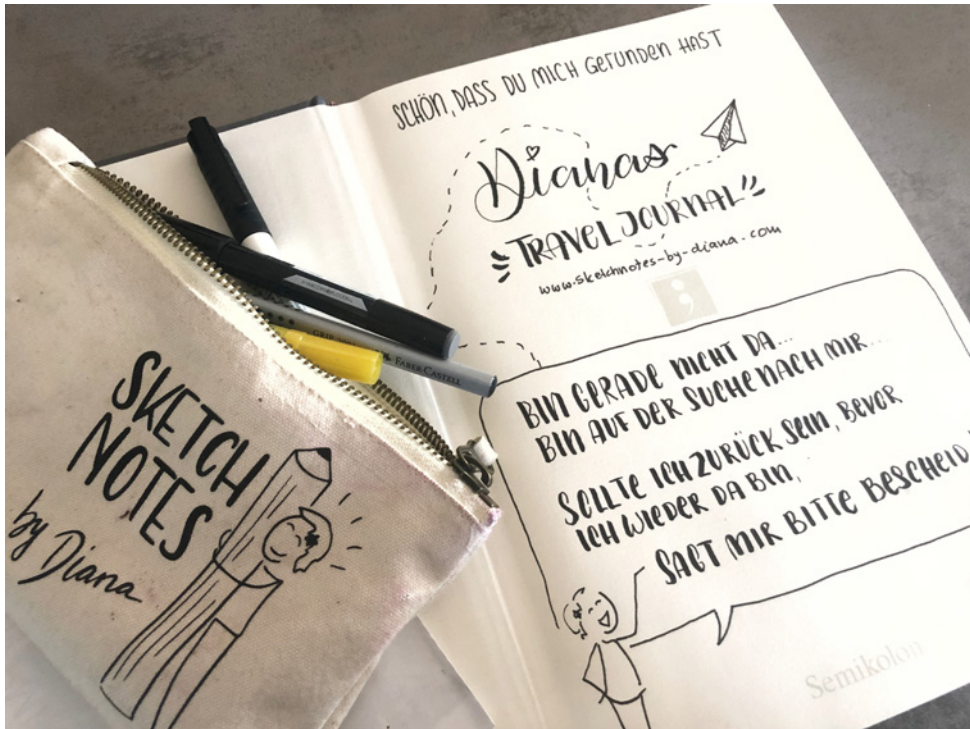 SCHÖN, DASS DU MICH GEFUNDEN HAST
Dianas
TRAVEL JOURNAL
www.sketchnotes-by-diana.com
;
BIN GERADE NICHT DA...
BIN AUF DER SUCHE NACH MIR...
SOLLTE ICH ZURÜCK SEIN, BEVOR
ICH WIEDER DA BIN,
SAGT MIR BITTE BESCHEID
Semikolon
FABER-CASTELL
SKETCH
NOTES
by Diana